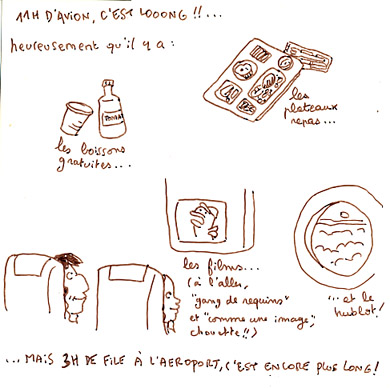 11H D'AVION, C'EST LOOONG !!...
heureusement qu'il y a :
les boissons
gratuites...
les
plateaux
repas...
les films...
(à l'aller,
"gang de requins"
et "comme une image",
chouette !!)
... et le
hublot !
... MAIS 3H DE FILE À L'AEROPORT, C'EST ENCORE PLUS LONG !